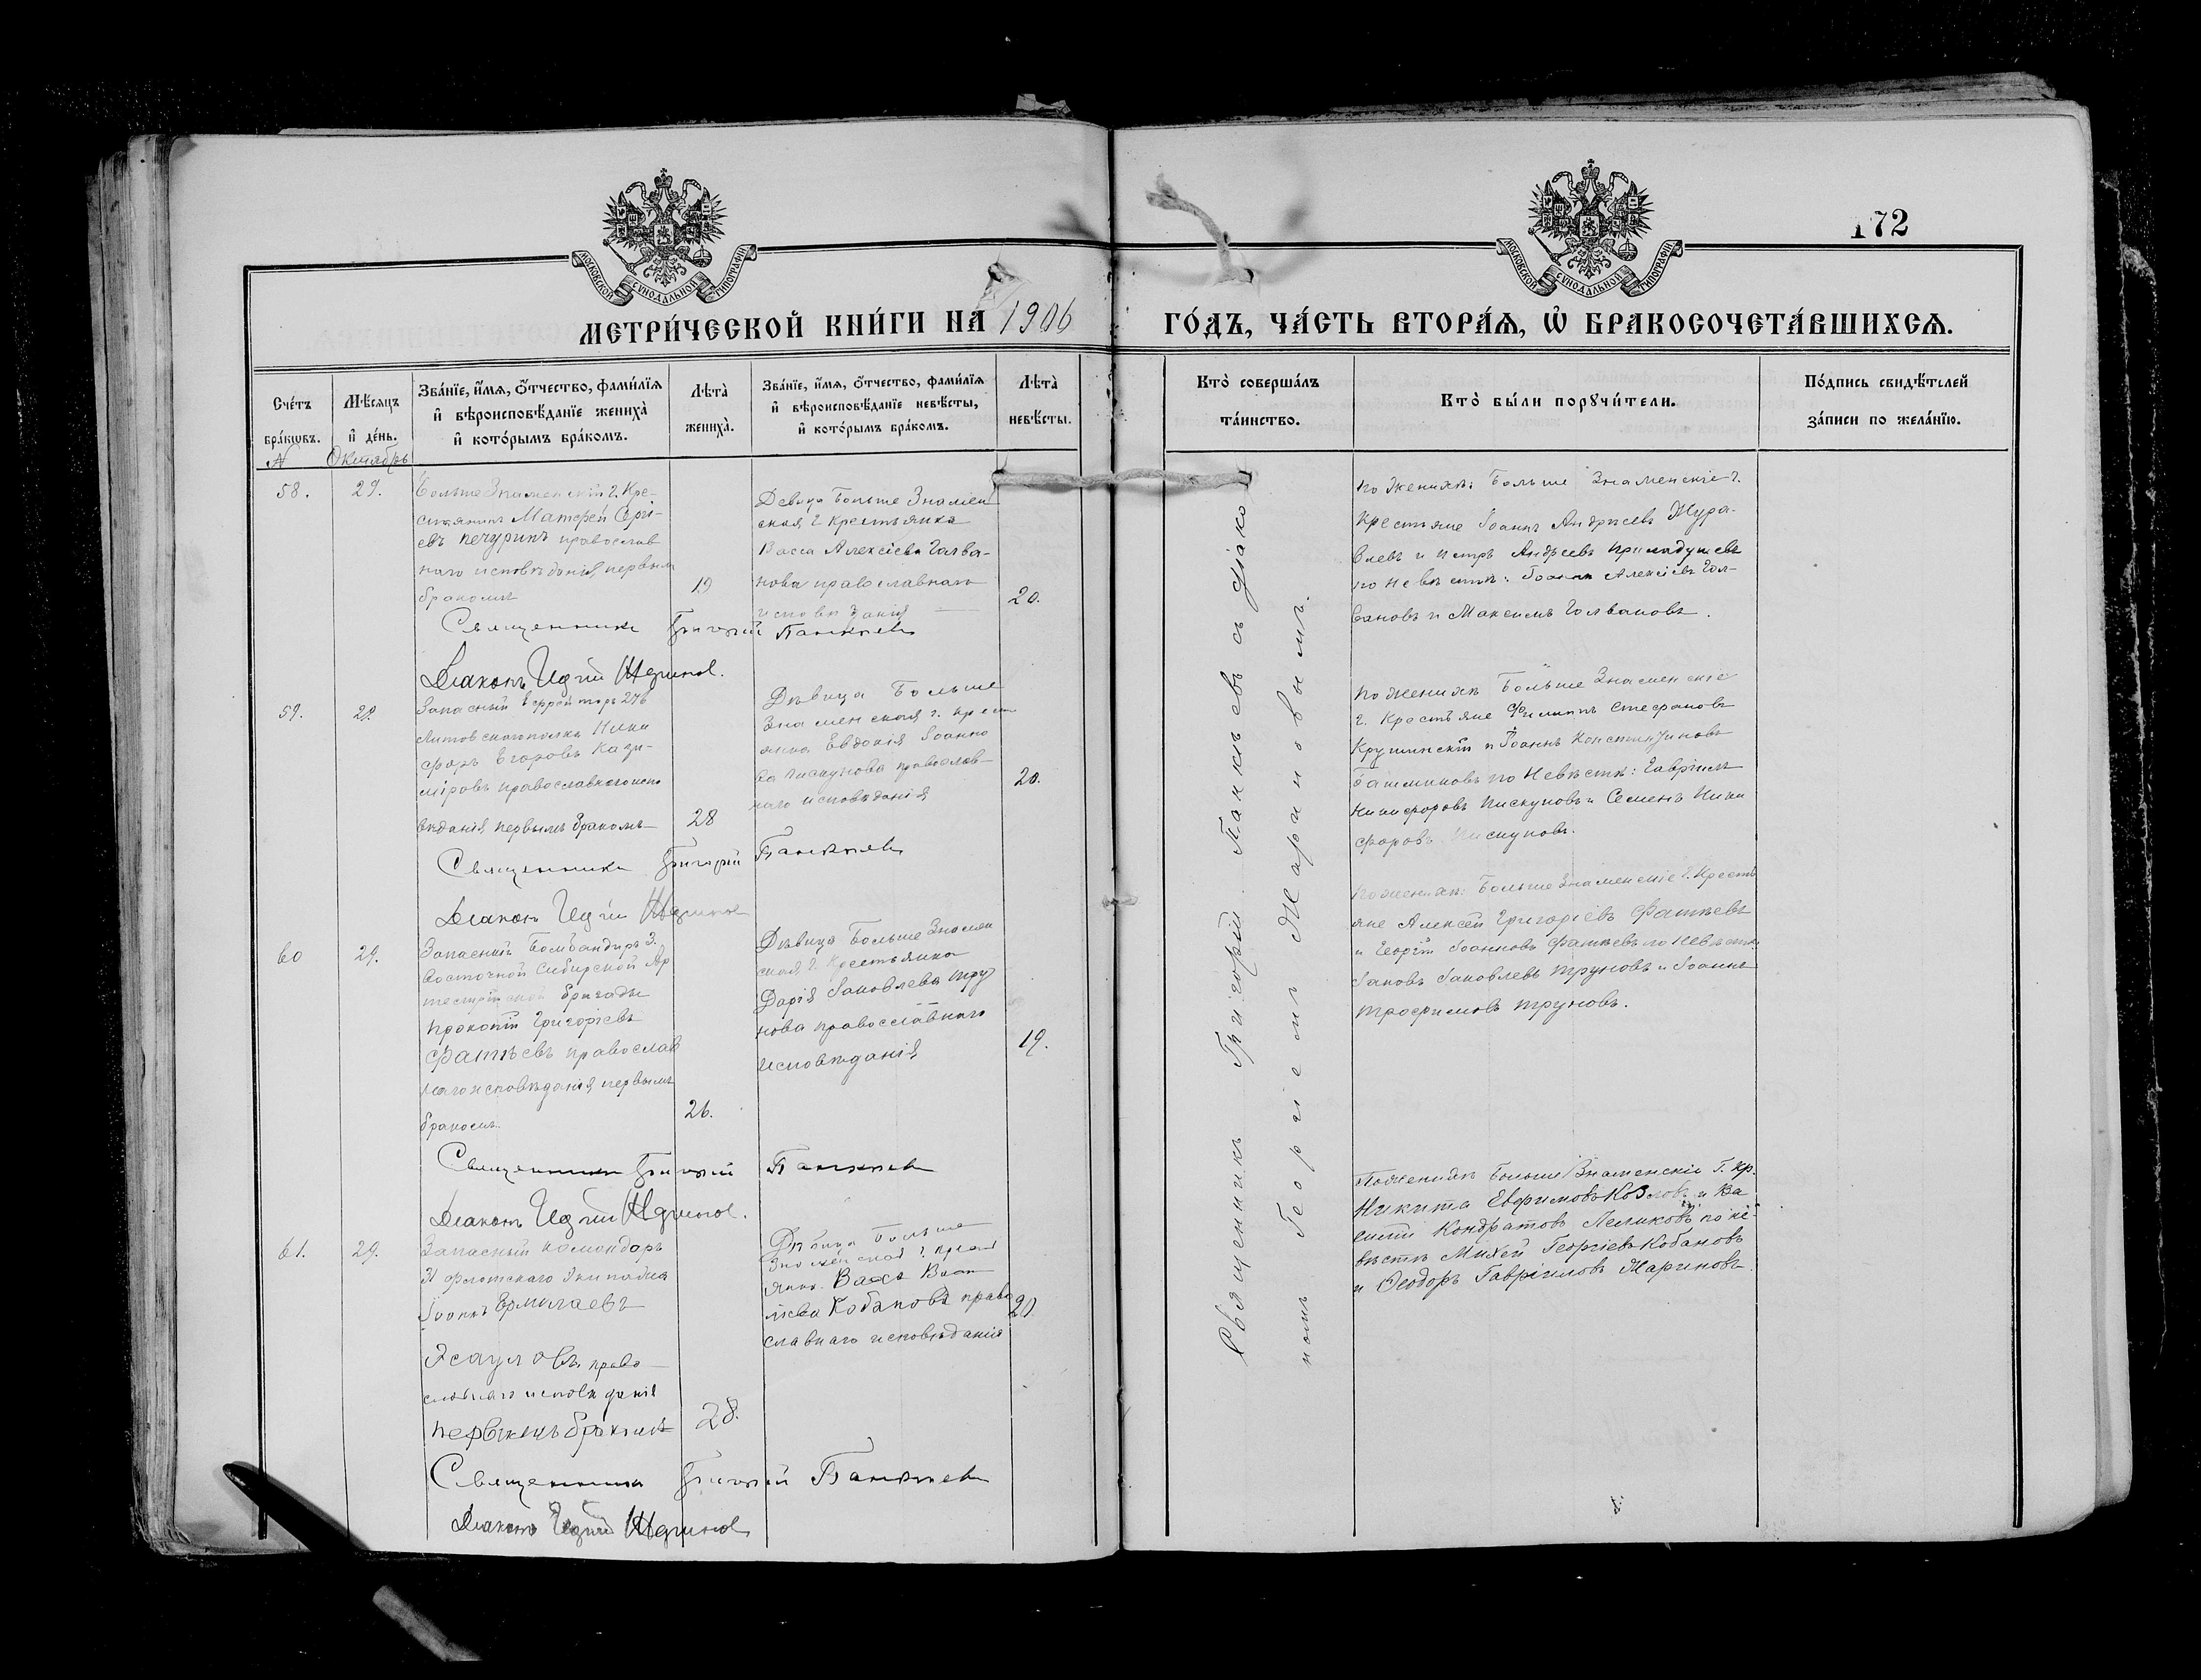 172
МОСКОВСКОЙ СѴНОДАЛЬНОЙ ТИПОГРАФІИ
МОСКОВСКОЙ СѴНОДАЛЬНОЙ ТИПОГРАФІИ
МЕТРИ́ЧЕСКОЙ КНИ́ГИ НА 1906 ГО́ДЪ, ЧА́СТЬ ВТОРА́Ѧ, Ѡ҆ БРАКОСОЧЕТА́ВШИХСѦ.
Сче́тъ бра́кѡвъ.
Мѣ́сѧцъ и҆ де́нь.
Зва́нїе, и҆́мѧ, ѻ҆́тчество, фами́лїѧ и҆ вѣроисповѣ́данїе жениха̀ и҆ кото́рымъ бра́комъ.
Лѣ́та̀ жениха̀.
Зва́нїе, и҆́мѧ, ѻ҆́тчество, фами́лїѧ и҆ вѣроисповѣ́данїе невѣ́сты, и҆ кото́рымъ бра́комъ.
Лѣ́та̀ невѣ́сты.
Кто̀ соверша́лъ та́инство.
Кто̀ бы́ли порꙋчи́тели.
По́дпись свидѣ́телей за́писи по жела́нїю.
N Октябрь
58.
29.
Больше Знаменскій г. Кре-
стьянинъ Матфей Серги-
евъ Печуринъ православ
наго исповѣданія, первым
бракомъ
19
Девица Больше Знамен
ская г крестьянка
Васса Алексіева Голва-
нова православнаго
исповѣданія
20.
по Женихѣ: Больше Знаменскіе г.
Крестьяне Іоаннъ Андреевъ Жура-
влевъ и Петръ Андреевъ
по Невѣстѣ: Іоаннъ Алексіевъ Гол-
вановъ и Максимъ Голвановъ.
Священникъ Григорій Панкѣевъ
Діаконъ Жариновъ.
59.
29.
Запасный Ефрейторъ
Литовскаго полка Ники
форъ Егоровъ Кази-
міровъ православнаго испо
вѣданія первымъ бракомъ
28
Дѣвица Больше
Знаменская г. крест
янка Евдокія Іоанно
ва Пискунова православ-
наго исповѣданія
20.
По женихѣ Больше Знаменскіе
г. Крестьяне Филиппъ Стефановъ
Крушинскій и Іоаннъ Константиновъ
по Невѣстѣ: Гавріилъ
Никифоровъ Пискуновъ и Семенъ Ники
форовъ Пискуновъ.
Священникъ Григорій Панкѣевъ
Діаконъ Жариновъ
60
29.
Запасный Бомбандиръ 3.
Восточной Сибирской Ар
бригады
Прокопій Григоріевъ
Фатѣевъ православ
наго исповѣданія первымъ
бракомъ.
26.
Дѣвица Больше Знамен
ская г. Крестьянка
Дарія Іаковлева Тру
нова православнаго
исповѣданія
19.
По женихѣ: Больше Знаменскіе г. Кресть
яне Алексей Григоріевъ Фатѣевъ
и Георгій Іоанновъ Фатѣевъ по Невѣстѣ:
Іаковъ Іаковлевъ Труновъ и Іоаннъ
Трофимовъ Труновъ.
Священникъ Григорій Панкѣевъ
Діаконъ Жариновъ.
61.
29.
Запасный
31 флотскаго Экипажа
Іоаннъ Ермилаевъ
Эсауловъ право
славнаго исповѣданія
первымъ бракомъ
28.
Дѣвица Больше
Знаменская г. крест
янка Васса Васи
ліева Кобанова право
славнаго исповѣданія
20.
По женихѣ Больше Знаменскіе г. кр.
Никита Евфимовъ Козловъ и Ва
силій Кондратовъ по не-
вѣстѣ Михей Георгіевъ Кобановъ
и Ѳеодоръ Гавріиловъ Жариновъ.
Священникъ Григорій Панкѣевъ
Діаконъ Жариновъ
Священникъ Григорій Панкѣевъ съ діако
номъ Георгіемъ Жариновымъ.